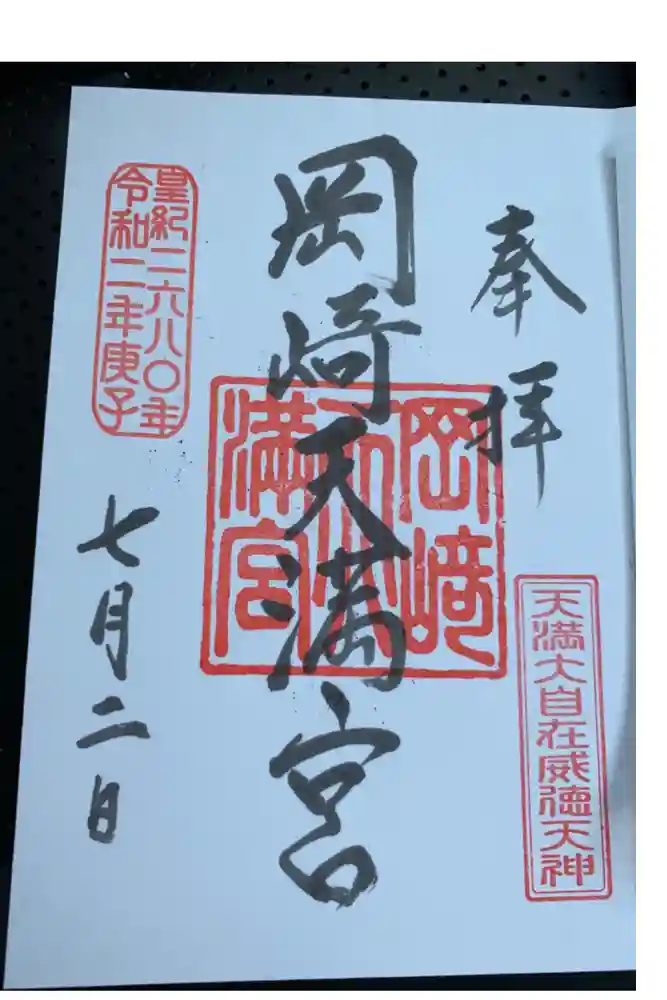 奉拝
天満大自在威徳天神
岡崎天満宮
岡﨑
天満宮
皇紀二六八〇年
令和二年庚子
七月二日